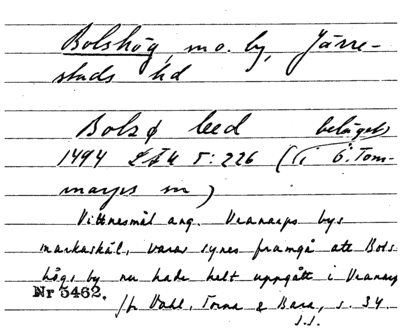 Bolshög, mo. by, Järre-
stads hd
Bolzø leed beläget
1494 ÆAU 5:226 (i Ö. Tom-
marps sn)
Vittnesmål ang. Vranarps bys
markaskäl, varav synes framgå att Bols-
högs by nu hade helt uppgått i Vranarp
Nr 5462. jfr Dahl, Torna & Bara, s. 34.